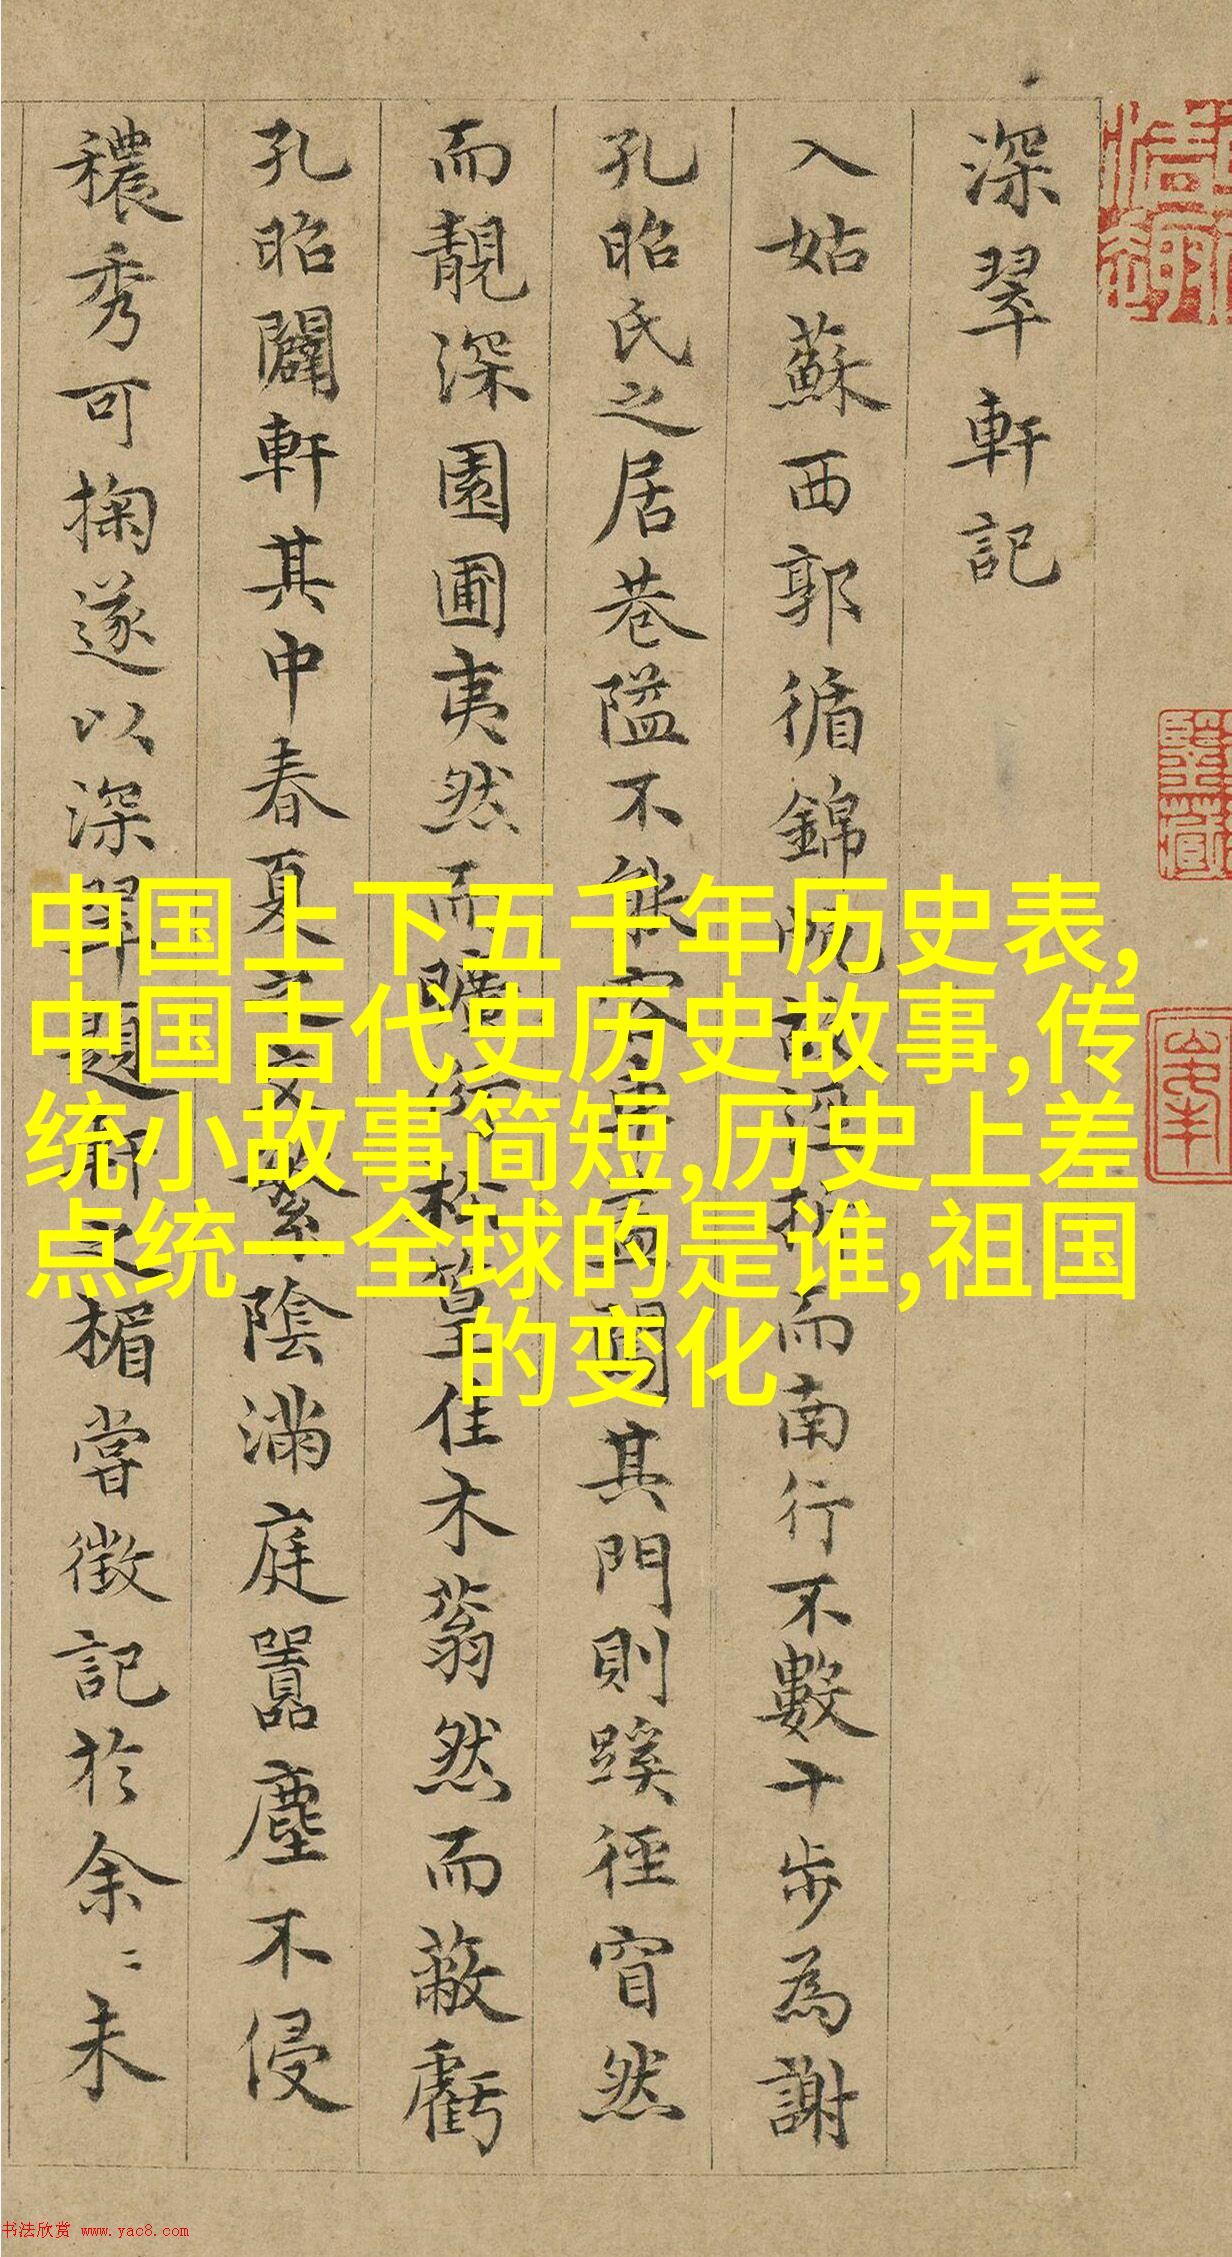 深翠軒記
入姑蘇西郭循錦帆故涇折而南行不數十步為謝
孔昭氏之居巷隘不能容車其門則蹊徑窅然
而靚深園圃夷然而曠松篁佳木蓊然而蔽虧
孔昭闢軒其中春夏之交繁陰滿庭囂塵不侵
穠秀可掬遂以深翠題軒之楣嘗徵記於余〻未
中国上下五千年历史表,
中国古代史历史故事,传
统小故事简短,历史上差
点统一全球的是谁,祖国
的变化
书法欣赏 www.yac8.com